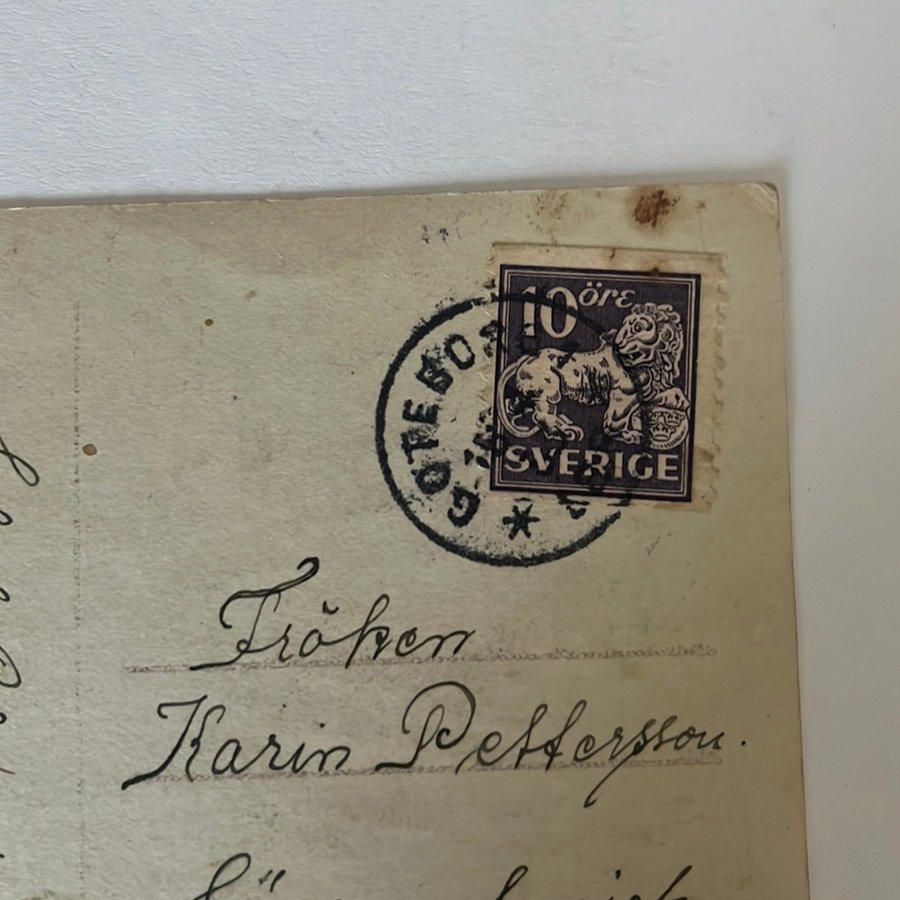 10 öre
SVERIGE
GÖTEBORG
Fröken
Karin Pettersson.